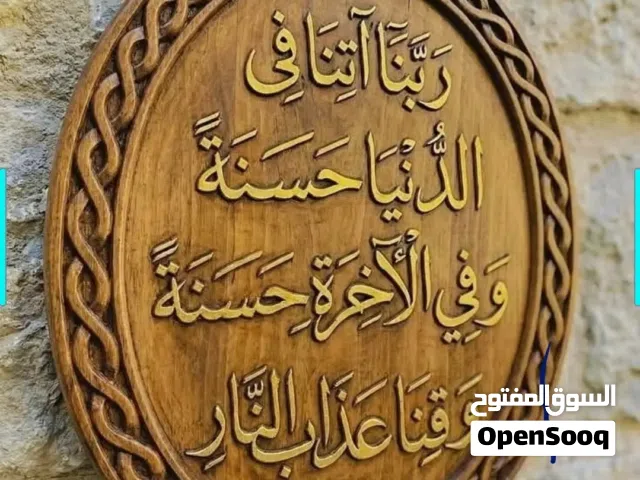 رَبَّنَآ آتِنَا فِي
الدُّنْيَا حَسَنَةً
وَفِي الْآخِرَةِ حَسَنَةً
وَقِنَا عَذَابَ النَّارِ
السوق المفتوح
OpenSooq